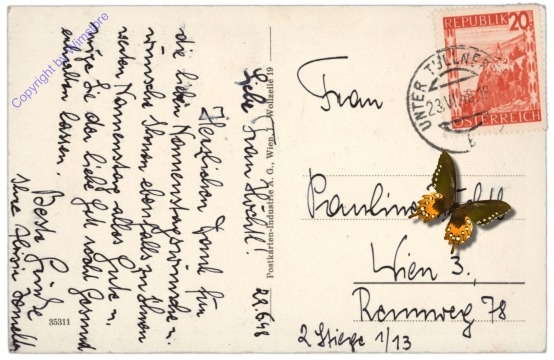 22.6.48
Liebe Frau Höchtl!
Herzlichen Dank für
die lieben Namenstagswünsche u.
wünsche Ihnen ebenfalls zu Ihrem
werten Namenstag alles Gute u.
möge Sie der liebe Gott recht gesund
erhalten lassen.
Beste Grüße
Ihre
35311
Postkarten-Industrie A. G., Wien, I. Wollzeile 19
Frau
Pauline
Wien 3.,
Rennweg 78
2 Stiege 1/13
REPUBLIK 20
ÖSTERREICH
UNTER TULLNER
23.VI.
Copyright by Wimstore